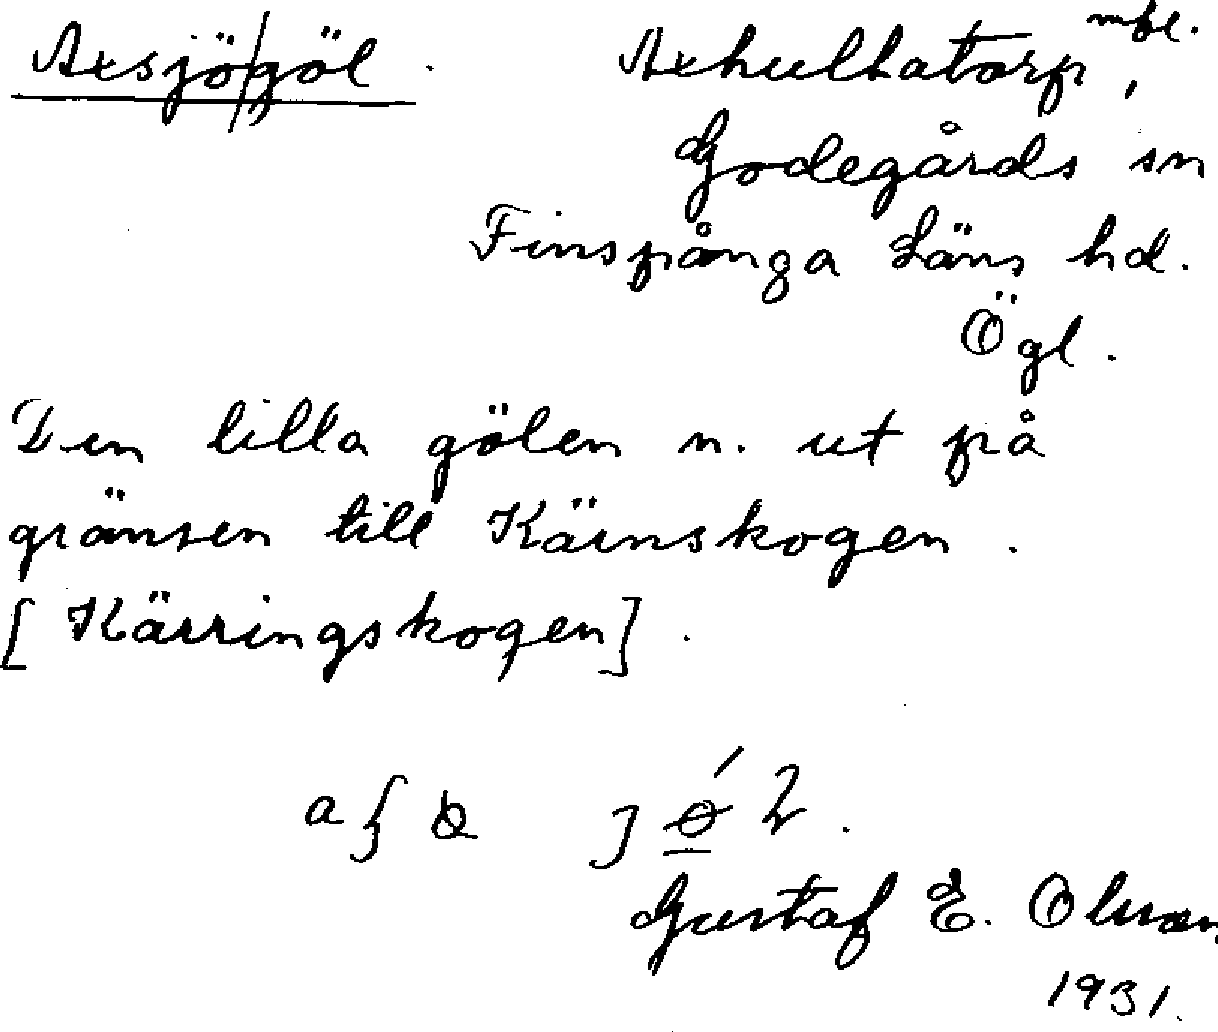 Axsjö/göl. Axhultatorp mfl.,
Godegårds sn
Finspånga Läns hd.
Ögl.
Den lilla gölen n. ut på
gränsen till Kärnskogen.
[Kärringskogen].
Gustaf E. Olsson
1931.